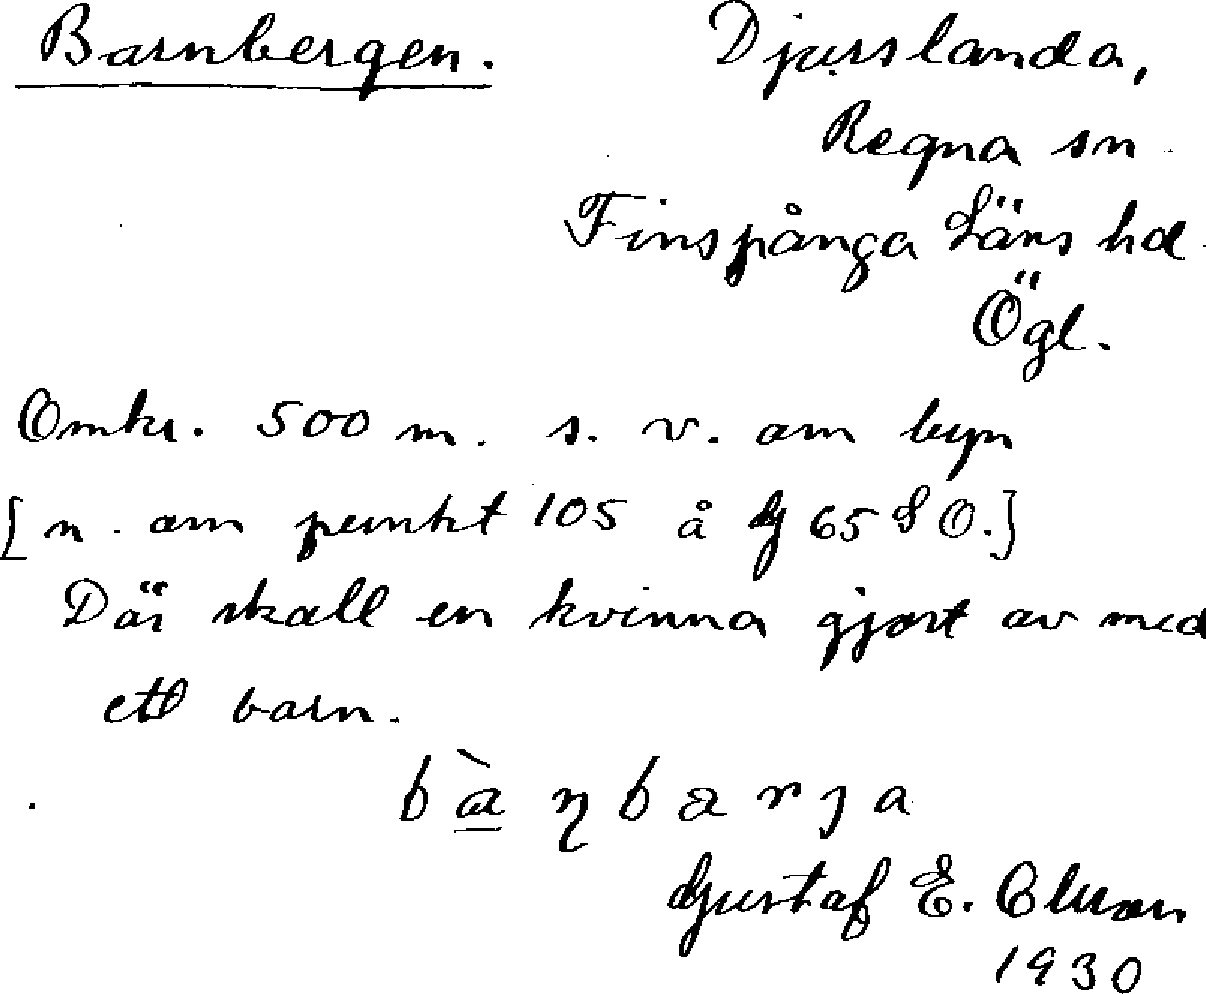 Barnbergen. Djurslanda,
Regna sn.
Finspånga Läns hd.
Ögl.
Omkr. 500 m. s. v. om byn
[n. om punkt 105 å G 65 S O.]
Där skall en kvinna gjort av med
ett barn.
Gustaf E.
1930